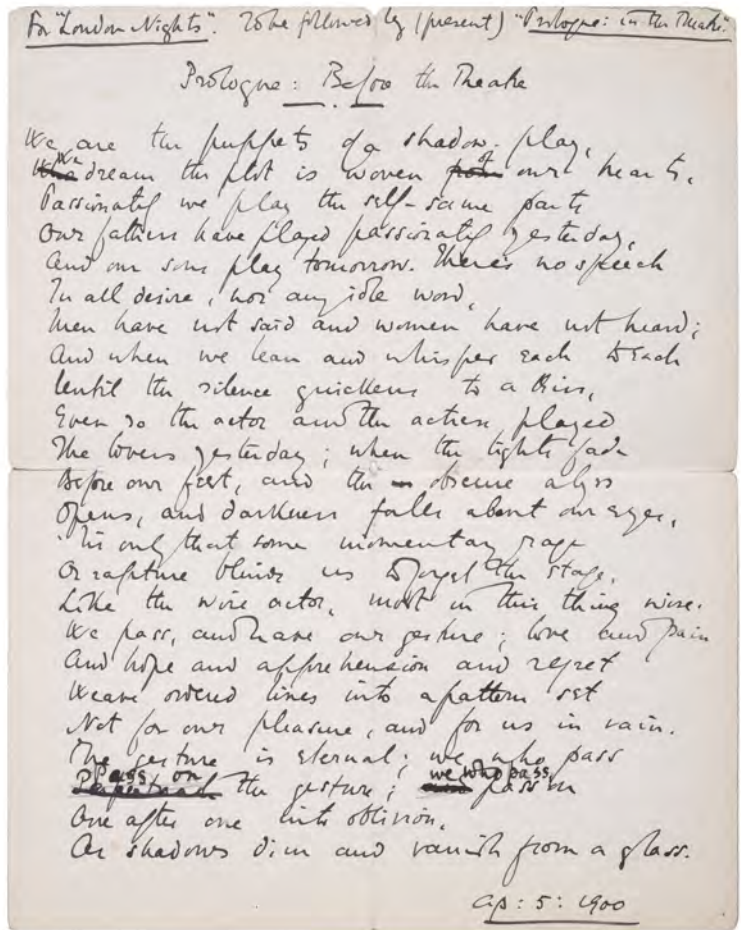 For "London Nights". To be followed by (present) "Prologue: in the Theatre".
Prologue: Before the Theatre
We are the puppets of a shadow-play,
We dream the plot is woven of our hearts,
Passionately we play the self-same parts
Our fathers have played passionately yesterday,
And our sons play tomorrow. There's no speech
In all desire, nor any idle word,
Men have not said and women have not heard;
And when we lean and whisper each to each
Until the silence quickens to a kiss,
Even so the actor and the actress played
The lovers yesterday; when the lights fade
Before our feet, and the obscure abyss
Opens, and darkness falls about our eyes,
'Tis only that some momentary rage
Or rapture blinds us to forget the stage,
Like the wise actor, most in this thing wise.
We pass, and have our gesture; love and pain
And hope and apprehension and regret
Weave ordered lines into a pattern set
Not for our pleasure, and for us in vain.
The gesture is eternal; we who pass
Pass on the gesture; we who pass, pass on
One after one into oblivion,
As shadows dim and vanish from a glass.
Ap: 5: 1900